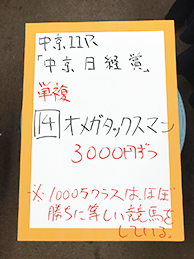 中京11R
「中京日経賞」
単複
14 オメガタックスマン
3000円ずつ
※1000万クラスは、ほぼ
勝ちに等しい競馬を
している。